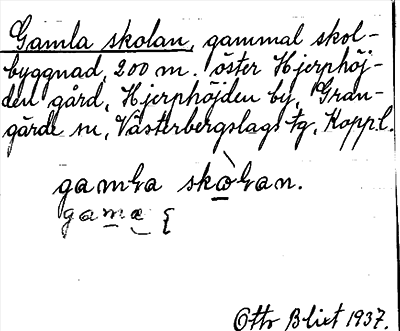 Gamla skolan, gammal skol-
byggnad, 200 m. öster Hjerphöj-
den gård, Hjerphöjden by, Gran-
gärde sn, Västerbergslags tg, Koppl.
gamla skòlan.
gamæ {
Otto Blixt 1937.